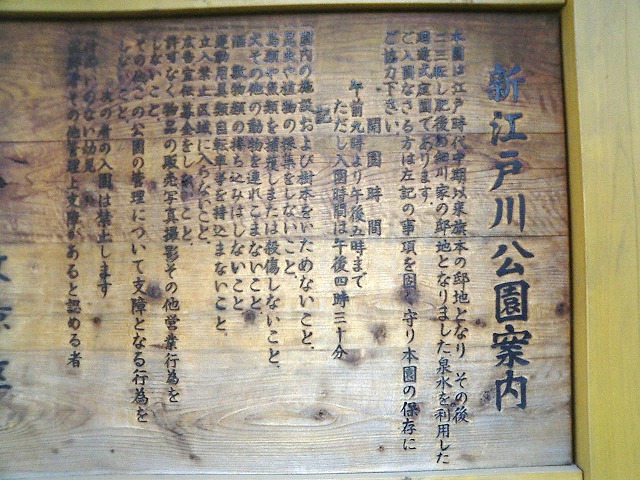 新江戸川公園案内
本園は江戸時代中期以来旗本の邸地となり その後
二三転し肥後の細川家の邸地となりました泉水を利用した
回遊式庭園であります。
ご入園なさる方は左記の事項を固く守り本園の保存に
ご協力下さい
開園時間
午前九時より午後五時まで
ただし入園時間は午後四時三十分
記
園内の施設および樹木をいためないこと、
昆虫や植物の採集をしないこと、
鳥類や魚類を捕獲しまたは殺傷しないこと、
犬その他の動物を連れこまないこと、
酒 敷物類の持ち込みはしないこと
運動用具類自転車等を持込まないこと、
立入禁止区域に入らないこと、
広告宣伝募金をし こと、
許可なく物品の販売写真撮影その他営業行為を
しないこと、
その他この公園の管理について支障となる行為を
しないこと、
次の者の入園は禁止します
のない幼児
その他管理上支障があると認める者